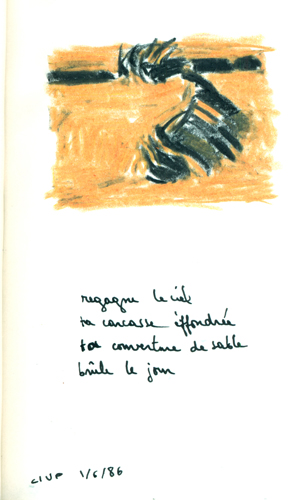 regagne le ciel
ta carcasse éffondrée
ta couverture de sable
brûle le jour
CIUP 1/6/86